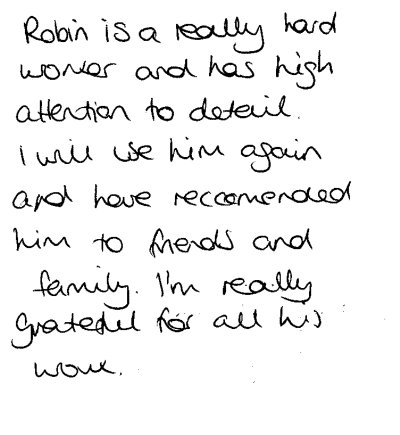 Robin is a really hard
worker and has high
attention to detail.
I will use him again
and have reccomended
him to friends and
family. I'm really
grateful for all his
work.